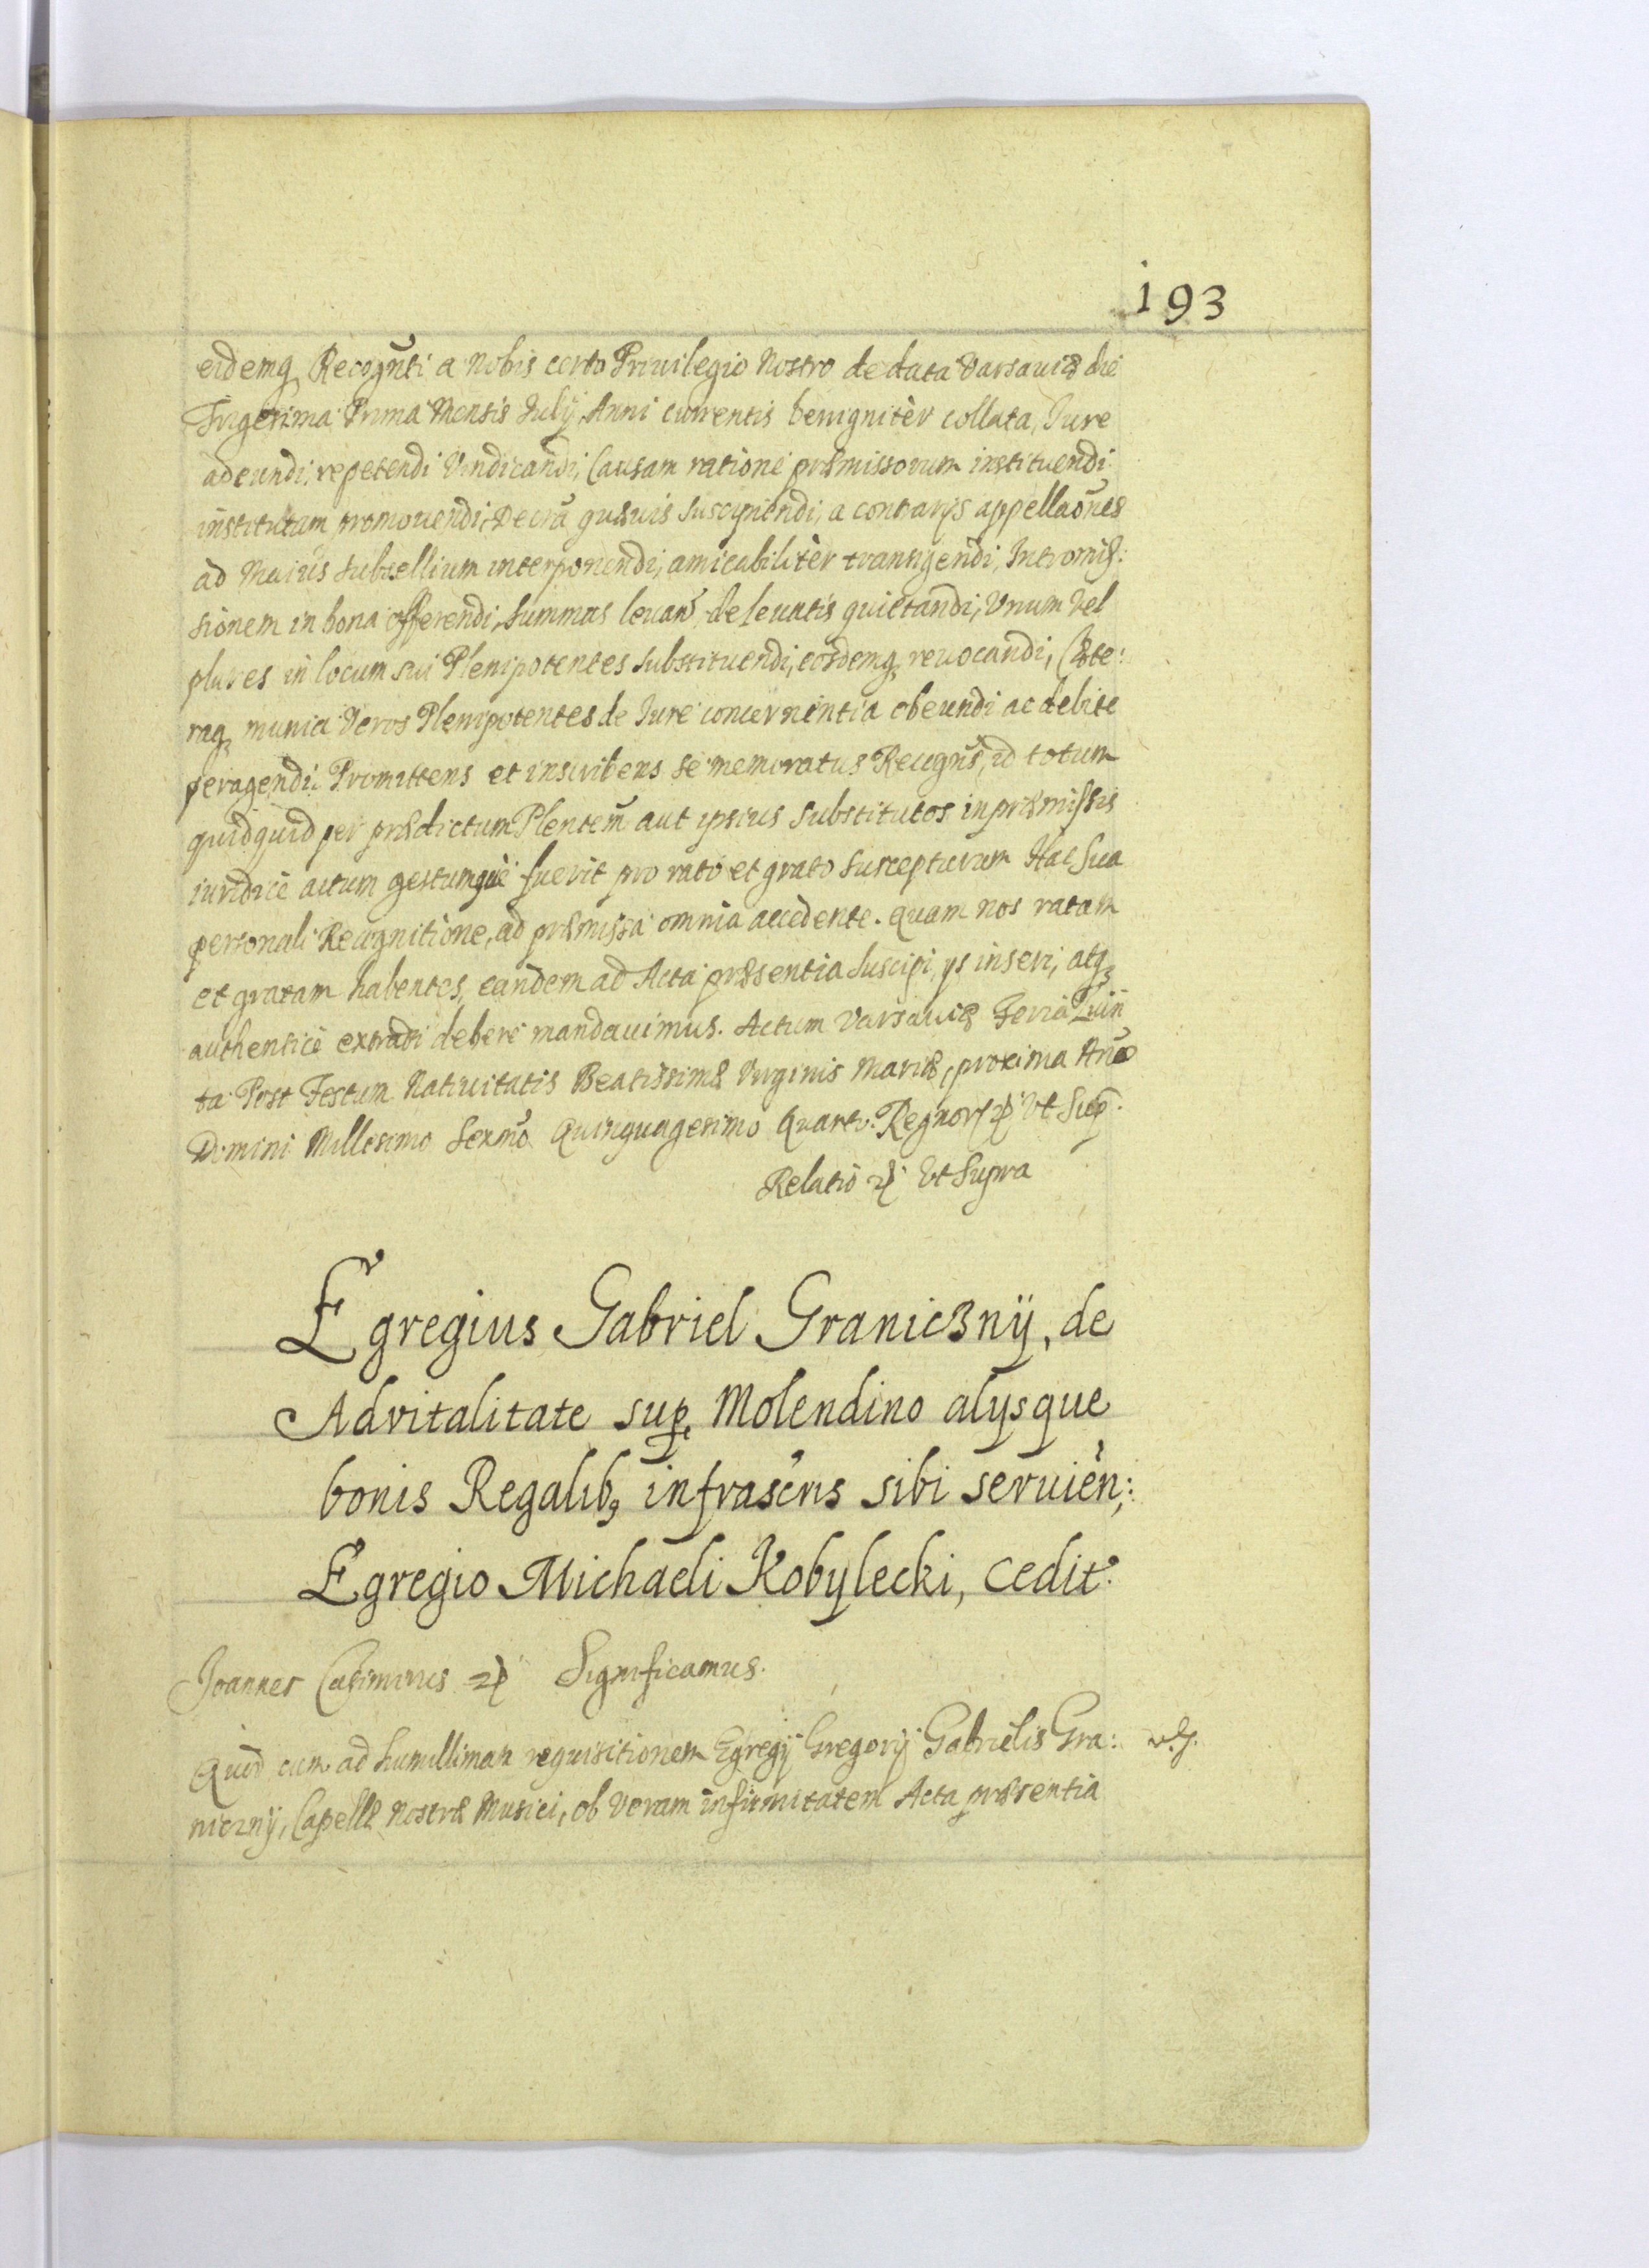 193
eidemq Recogn̄ti a Nobis certo Priuilegio Nostro de data Varsauiæ die
Trigesima Prima Mensis Iulij Anni currentis benignitèr collata, Iure
adeundi, repetendi Vindicandi, Causam ratione præmissorum instituendi
institutam promouendi, Decrā quæuis suscipiendi, a contrarijs appellaōnes
ad Maius subsellium interponendi, amicabilitèr transigendi, Intromis:
sionem in bona offerendi, summas leuan̄, de leuatis quietandi, Vnum Vel
plures in locum sui Plenipotentes substituendi, eosdemq, reuocandi, Cæte:
raq, munia Veros Plenipotentes de Iure concernentia obeundi ac debite
peragendi. Promittens et inscribens se memoratus Recogn̄s, id totum
quidquid per prædictum Plentem̄ aut ipsius substitutos in præmissis
iuridice actum gestumquè fuerit pro rato et grato suscepturum Hac sua
personali Recognitione, ad præmissa omnia accedente. Quam nos ratam
et gratam habentes, eandem ad Acta præsentia suscipi, ijs inseri, atq,
authenticè extradi debere mandauimus. Actum Varsauiæ Feria Quin
ta Post Festum Natiuitatis Beatissimæ Virginis Mariæ, proxima An̄o
Domini Millesimo Sexm̄o Quinquagesimo Quarto. Regnorꝝ ꝛc Vt Sup.
Relatio ꝛc Vt Supra
Egregius Gabriel Graniczny, de
Advitalitate sup, Molendino alysque
bonis Regalib, infrascris sibi seruièn;:
Egregio Michaeli Kobylecki, cedit.
Joannes Casimirus ꝛc Significamus.
Quod cum ad humillimam requisitionem Egregij Gregorij Gabrielis Gra:
niczny, Capellæ Nostræ Musici, ob Veram infirmitatem Acta præsentia